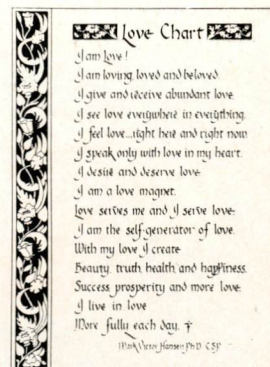 Love Chart
I am Love!
I am loving, loved and beloved.
I give and receive abundant love.
I see love everywhere in everything.
I feel love...right here and right now.
I speak only with love in my heart.
I desire and deserve love.
I am a love magnet.
Love serves me and I serve love.
I am the self-generator of love.
With my love I create
Beauty, truth, health, and happiness.
Success, prosperity and more love.
I live in love
More fully each day.
Mark Victor Hansen Ph D. CSP